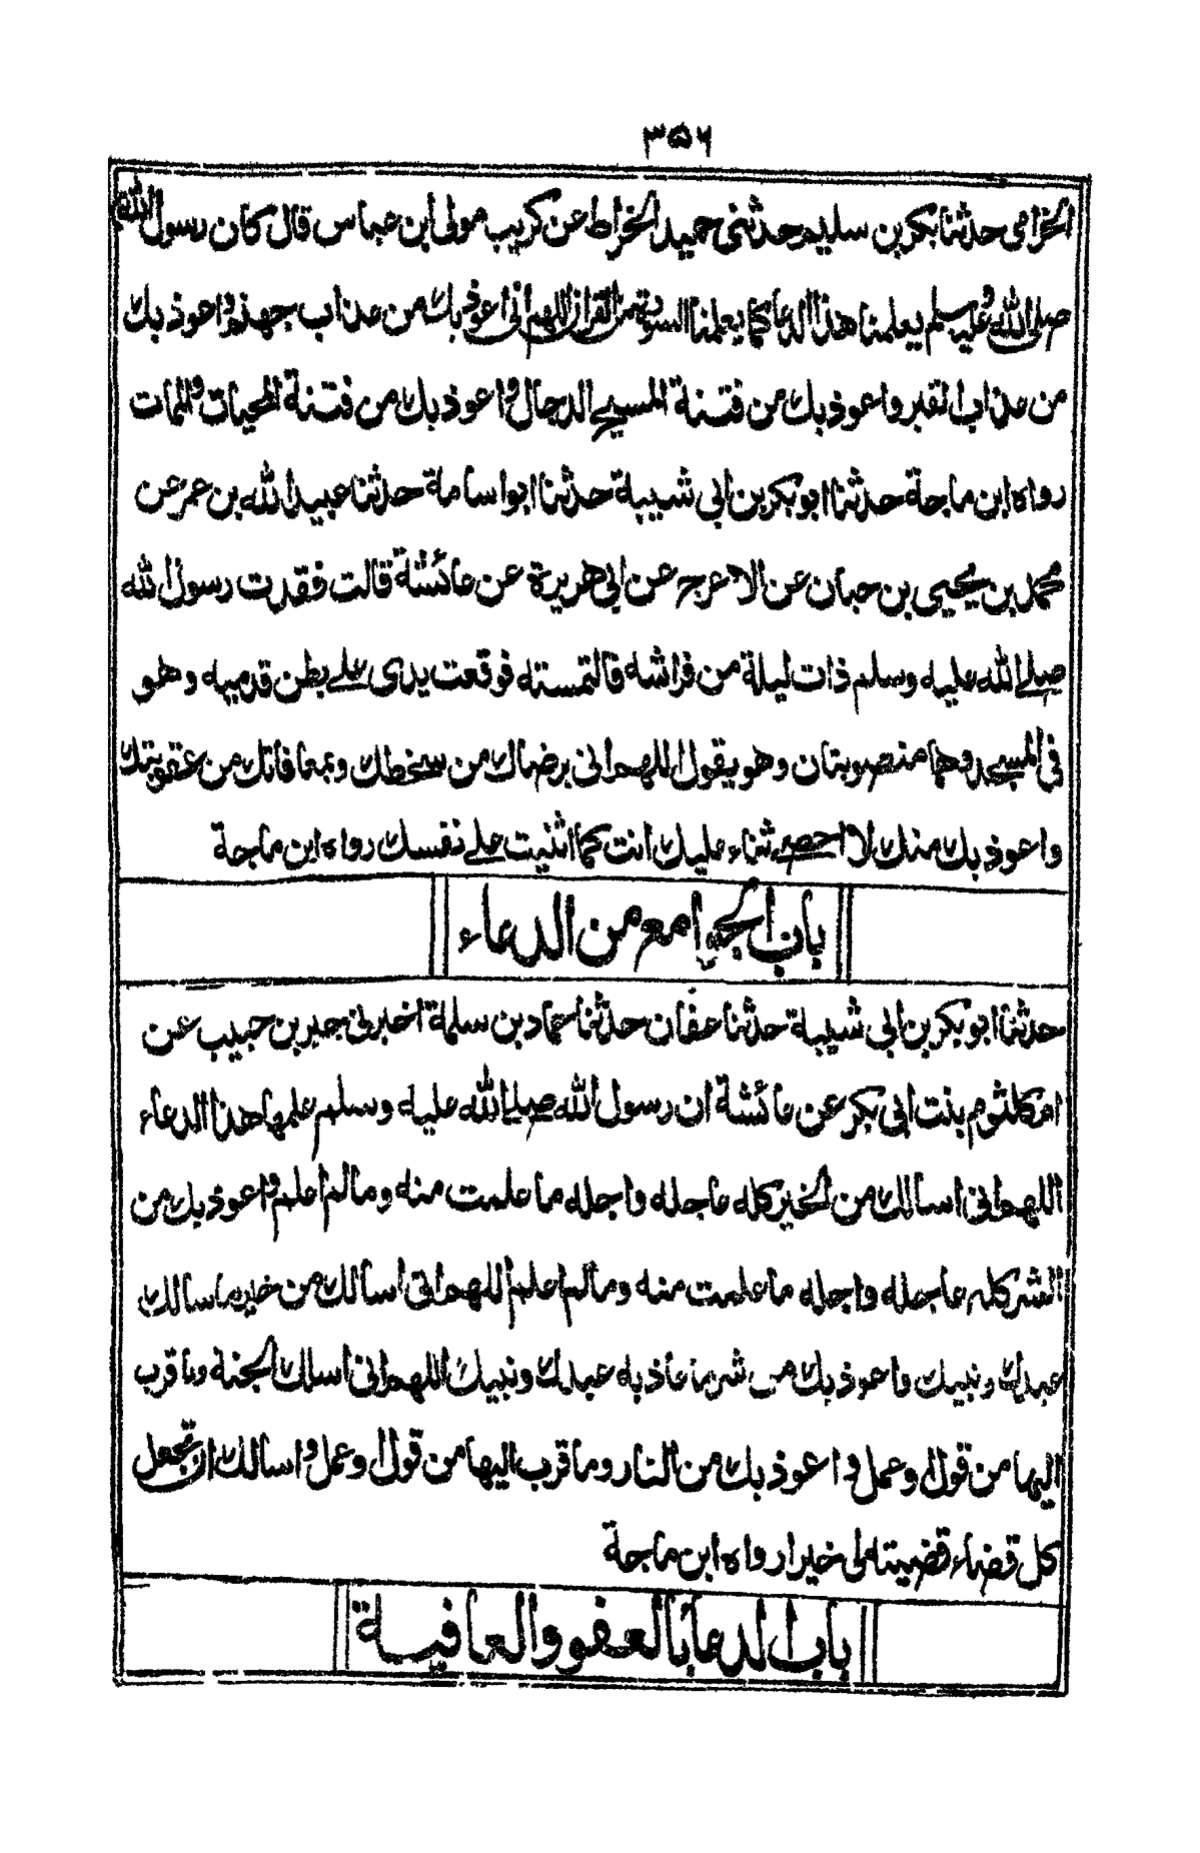 ۳۵۶
الخرامى حدثنا بكر بن سليم حدثنى حميد الخراط عن كريب مولى ابن عباس قال كان رسول الله
صلى الله عليه وسلم يعلمنا هذا الدعا كما يعلمنا السورة من القران اللهم انى اعوذ بك من عذاب جهنم واعوذ بك
من عذاب القبر واعوذ بك من فتنة المسيح الدجال واعوذ بك من فتنة المحيات والممات
رواه ابن ماجة حدثنا ابو بكر بن ابى شيبة حدثنا ابو اسامة حدثنا عبيد الله بن عمر عن
محمد بن يحيى بن حبان عن الاعرج عن ابى هريرة عن عائشة قالت فقدت رسول الله
صلى الله عليه وسلم ذات ليلة من فراشه فالتمسته فوقعت يدى على بطن قدميه وهو
فى المسجد وهما منصوبتان وهو يقول اللهم انى برضاك من سخطك وبمعافاتك من عقوبتك
واعوذ بك منك لا احصى ثناء عليك انت كما اثنيت على نفسك رواه ابن ماجة
باب الجوامع من الدعاء
حدثنا ابو بكر بن ابى شيبة حدثنا عفان حدثنا حماد بن سلمة اخبرنى جبر بن حبيب عن
ام كلثوم بنت ابى بكر عن عائشة ان رسول الله صلى الله عليه وسلم علمها هذا الدعاء
اللهم انى اسالك من الخير كله عاجله واجله ما علمت منه ومالم اعلم واعوذ بك من
الشر كله عاجله واجله ما علمت منه ومالم اعلم اللهم انى اسالك من خير ما سالك
عبدك ونبيك واعوذ بك من شر ما عاذ به عبدك ونبيك اللهم انى اسالك الجنة وما قرب
اليها من قول وعمل واعوذ بك من النار وما قرب اليها من قول وعمل واسالك ان تجعل
كل قضاء قضيته لى خيرا رواه ابن ماجة
باب الدعا بالعفو والعافية